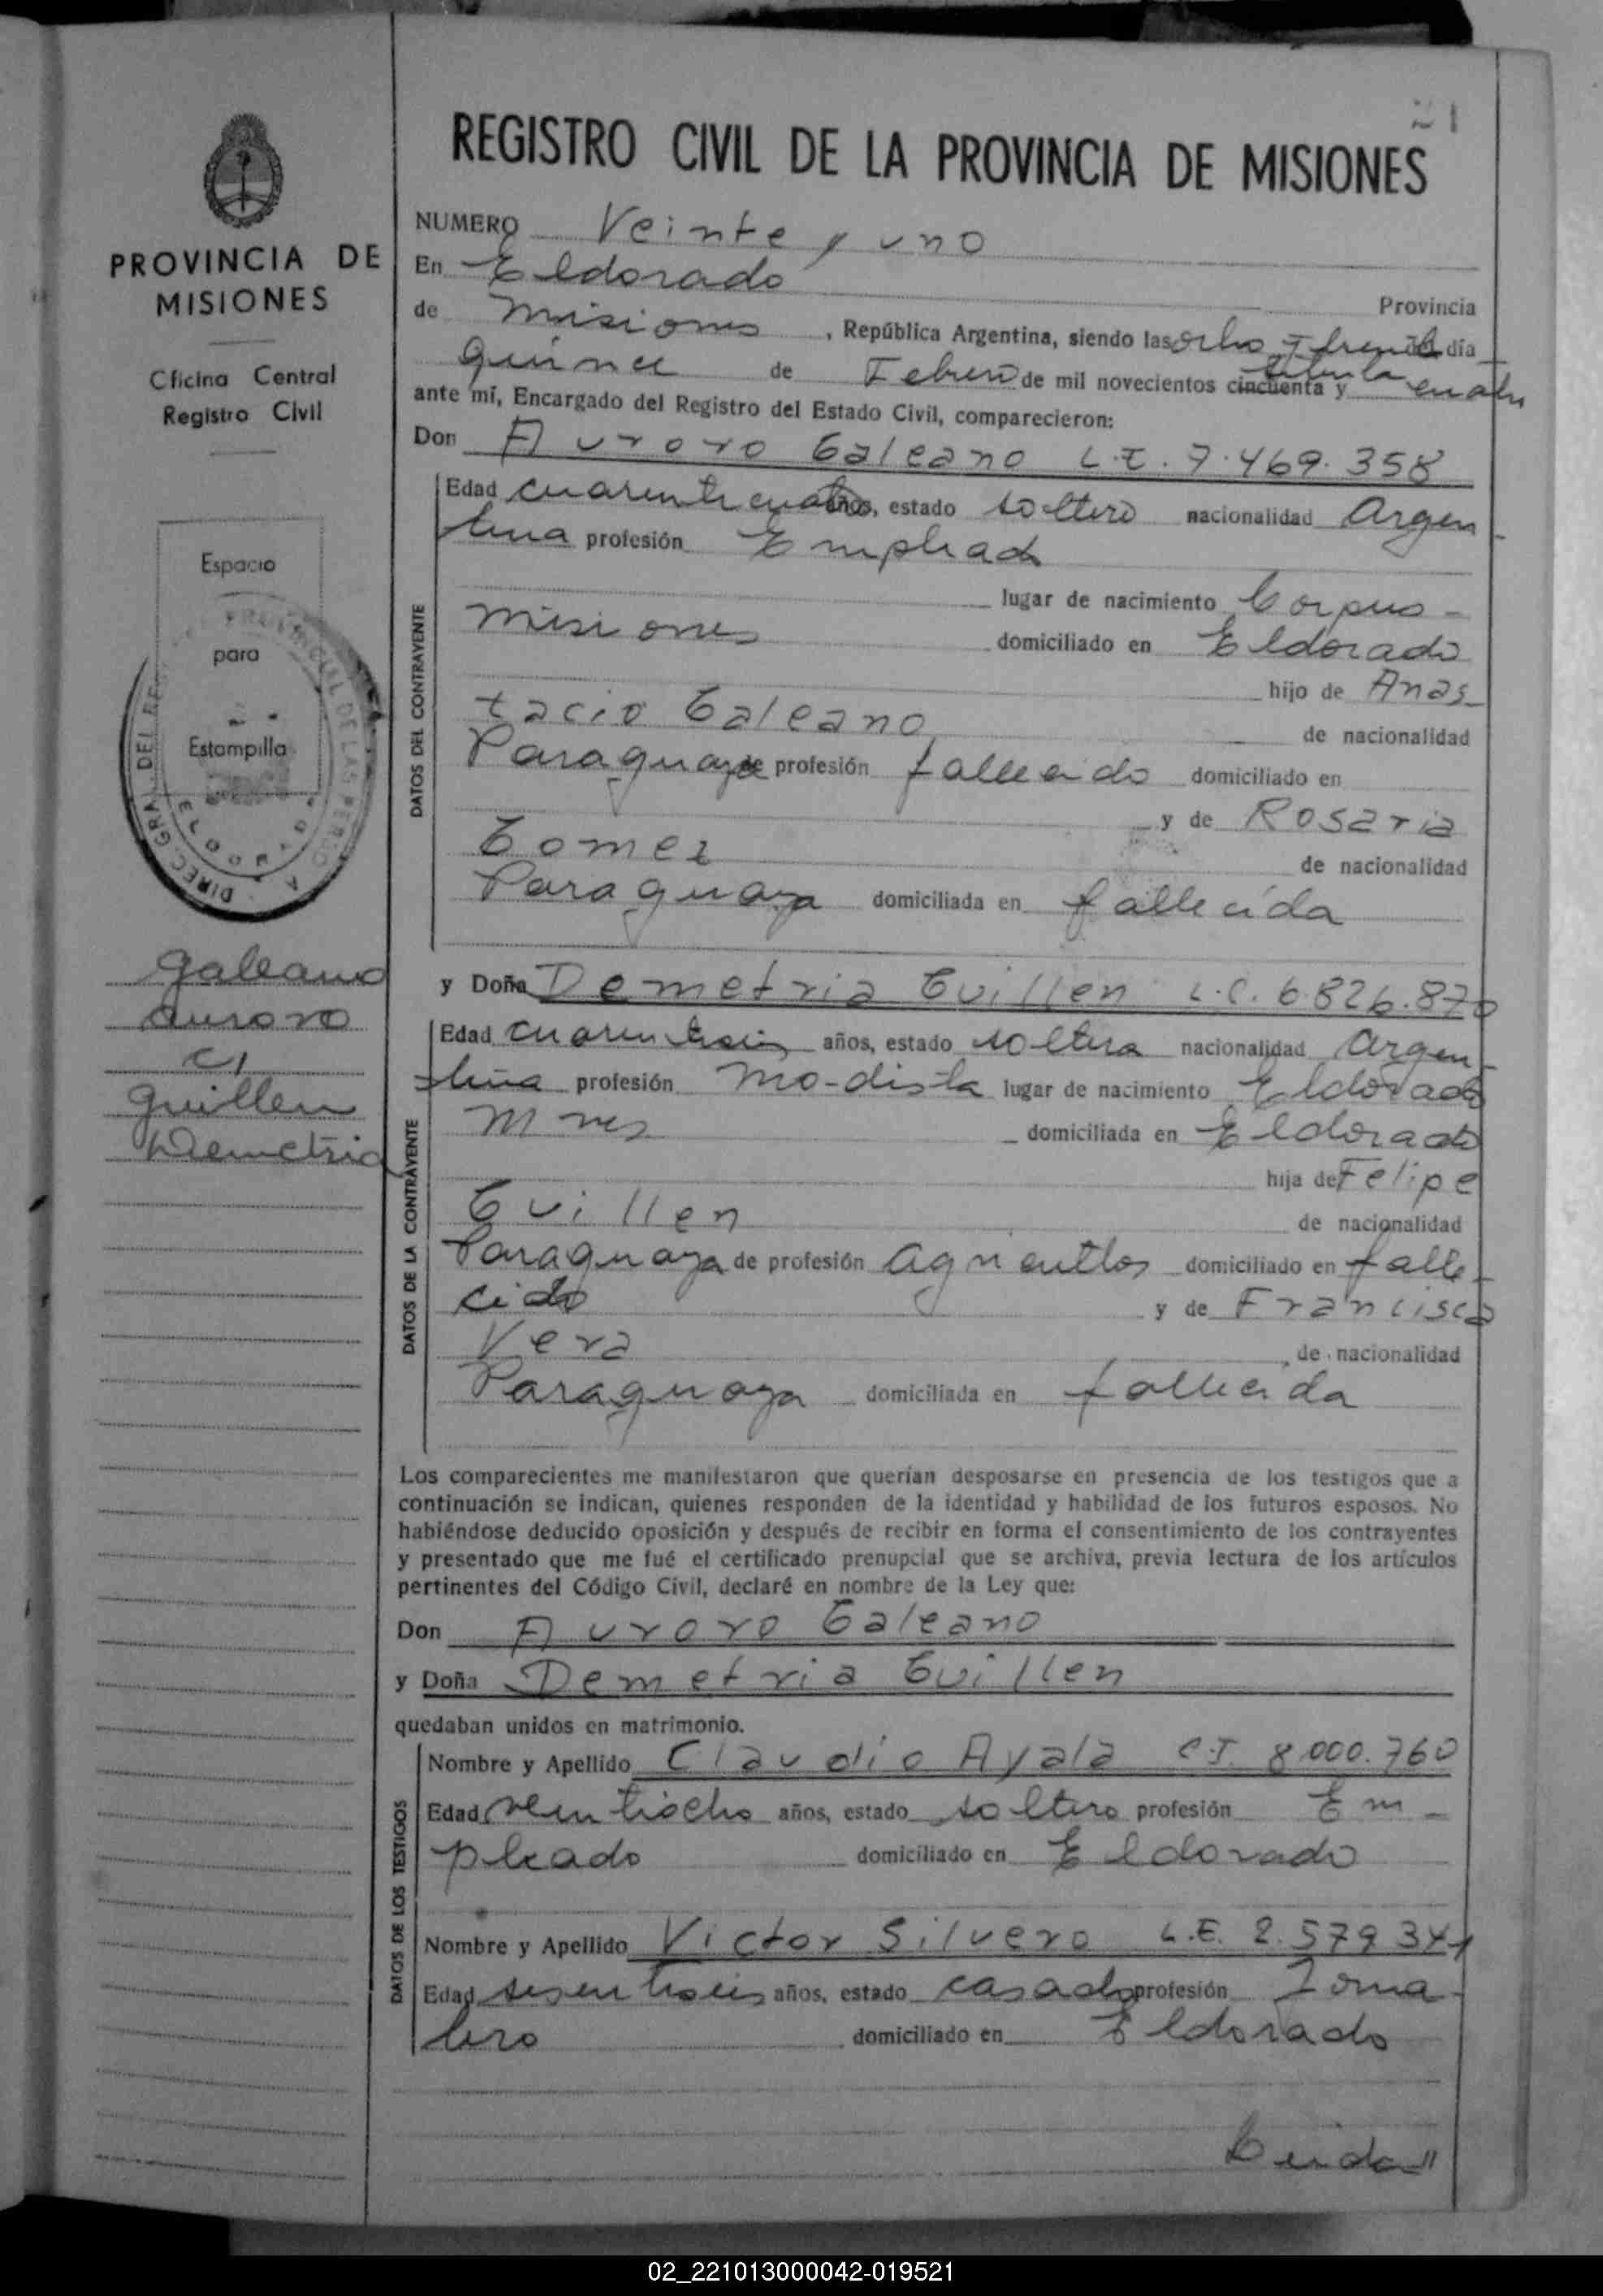 21
REGISTRO CIVIL DE LA PROVINCIA DE MISIONES
PROVINCIA DE
MISIONES
Oficina Central
Registro Civil
Espacio
para
Estampilla
DIREC. GRAL. DEL
ELDORADO
Galeano
Auroro
c/
Guillen
Demetria
NUMERO Veinte y uno
En Eldorado
Provincia
de Misiones, República Argentina, siendo las ocho y treinta del día
quince de Febrero de mil novecientos cincuenta y setenta cuatro
ante mí, Encargado del Registro del Estado Civil, comparecieron:
Don Auroro Galeano L.E. 7.469.358
DATOS DEL CONTRAYENTE
Edad cuarenticuatro años, estado soltero nacionalidad Argen-
tina profesión Empleado
lugar de nacimiento Corpus-
Misiones domiciliado en Eldorado
hijo de Anas-
tacio Galeano de nacionalidad
Paraguaya de profesión fallecido domiciliado en
y de Rosaria
Gomez de nacionalidad
Paraguaya domiciliada en fallecida
y Doña Demetria Guillen L.C. 6.826.870
DATOS DE LA CONTRAYENTE
Edad cuarentiseis años, estado soltera nacionalidad Argen-
tina profesión Mo-dista lugar de nacimiento Eldorado
Mnes domiciliada en Eldorado
hija de Felipe
Guillen de nacionalidad
Paraguaya de profesión agricultor domiciliado en falle-
cido y de Francisca
Vera de nacionalidad
Paraguaya domiciliada en fallecida
Los comparecientes me manifestaron que querían desposarse en presencia de los testigos que a
continuación se indican, quienes responden de la identidad y habilidad de los futuros esposos. No
habiéndose deducido oposición y después de recibir en forma el consentimiento de los contrayentes
y presentado que me fué el certificado prenupcial que se archiva, previa lectura de los artículos
pertinentes del Código Civil, declaré en nombre de la Ley que:
Don Auroro Galeano
y Doña Demetria Guillen
quedaban unidos en matrimonio.
DATOS DE LOS TESTIGOS
Nombre y Apellido Claudio Ayala C.I. 8.000.760
Edad veintiocho años, estado soltero profesión Em-
pleado domiciliado en Eldorado
Nombre y Apellido Victor Silvero L.E. 2.579.341
Edad sesentiseis años, estado casado profesión Jorna-
lero domiciliado en Eldorado
02_221013000042-019521